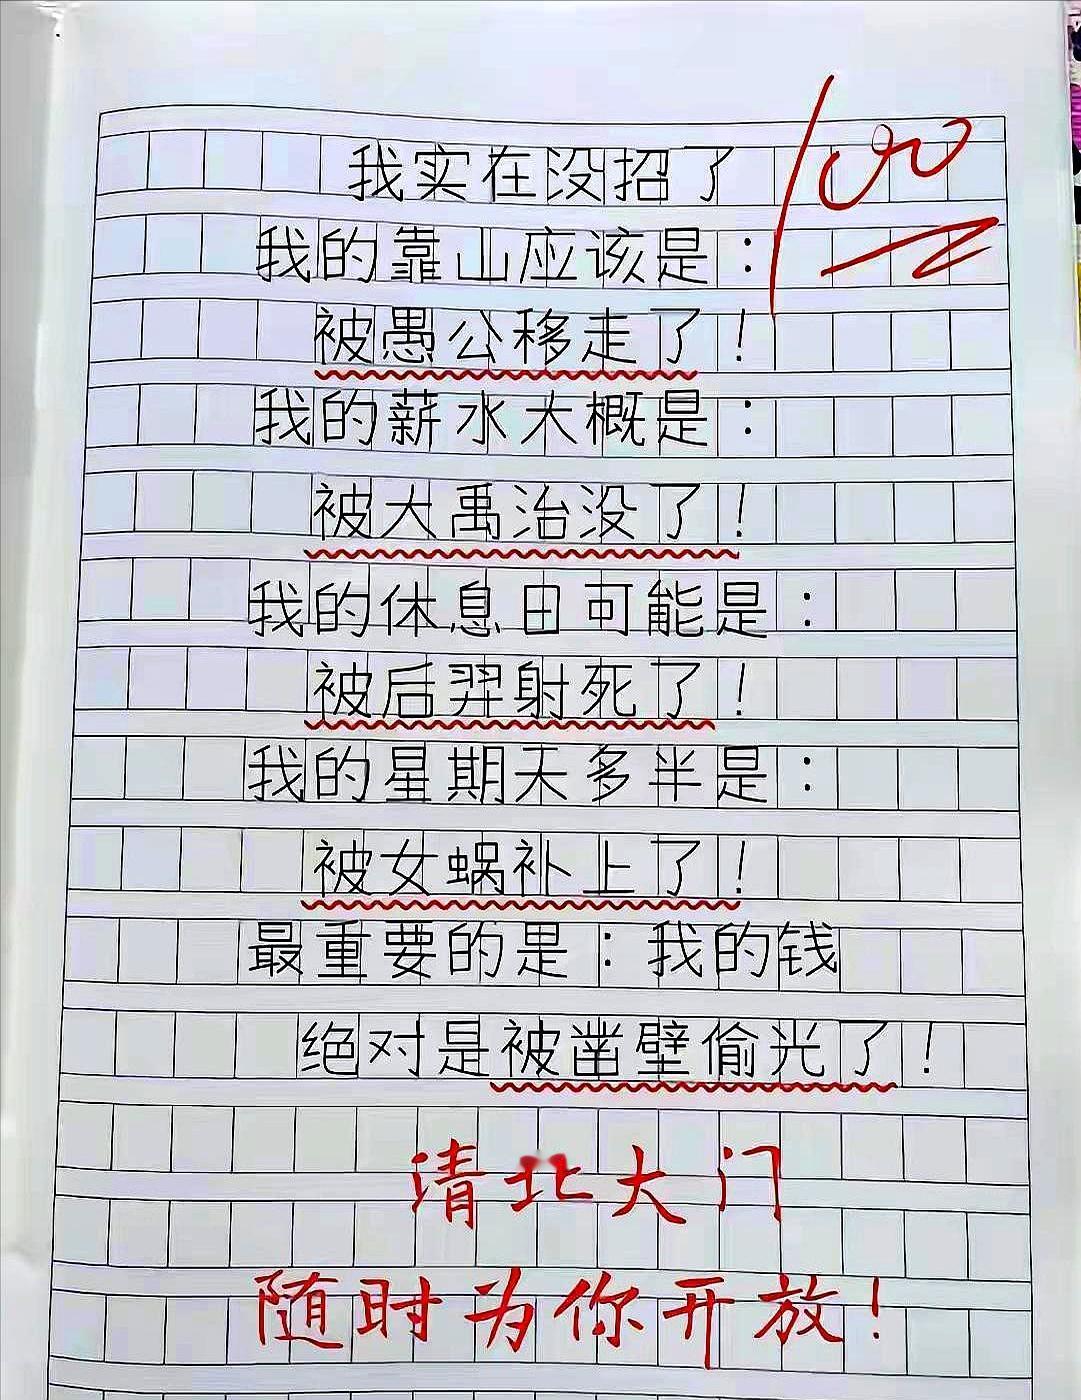 我实在没招了
100
我的靠山应该是：
被愚公移走了！
我的薪水大概是：
被大禹治没了！
我的休息日可能是：
被后羿射死了！
我的星期天多半是：
被女娲补上了！
最重要的是：我的钱
绝对是被凿壁偷光了！
清北大门
随时为你开放！